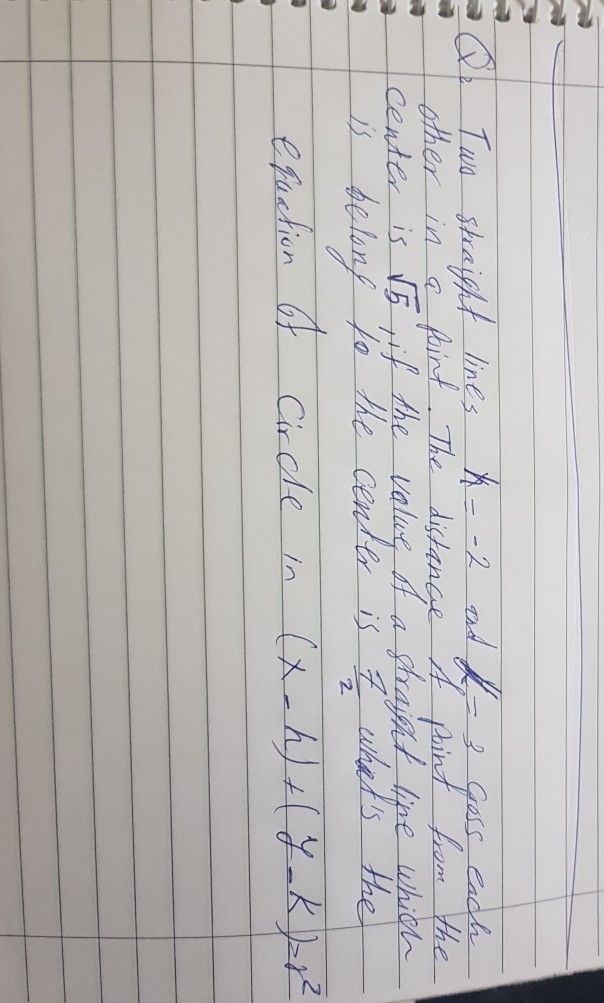 Q: Two straight lines X = -2 and Y = 3 Cross each
other in a point. The distance of point from the
center is √5, if the value of a straight line which
is belong to the center is 7/2 what's the
equation of Circle in (x - h) + (y - k) = r²